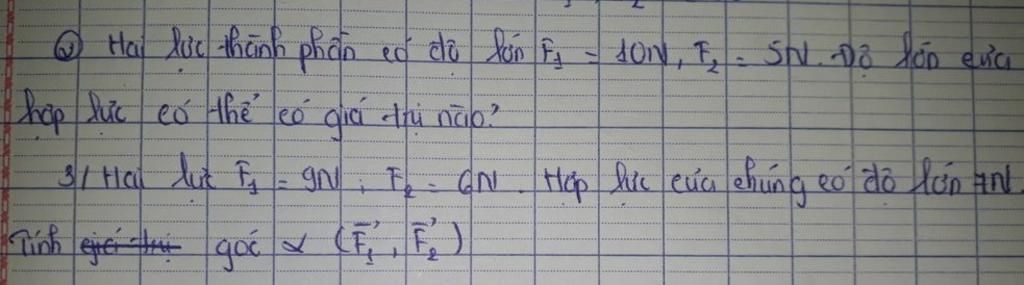 ② Hai lực thành phần có độ lớn F₁ = 10N, F₂ = 5N. Độ lớn của
hợp lực có thể có giá trị nào?
3/ Hai lực F₁ = 9N; F₂ = 6N. Hợp lực của chúng có độ lớn 7N.
Tính góc α (F₁, F₂)